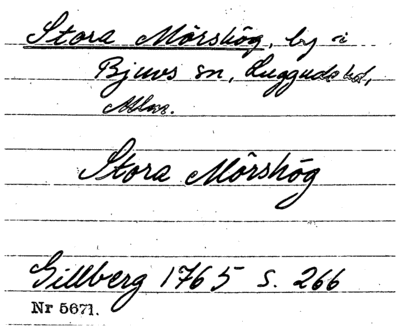 Stora Mörshög, by i
Bjuvs sn, Luggude hd,
Mlm.
Stora Mörshög
Gillberg 1765 s. 266
Nr 5671.